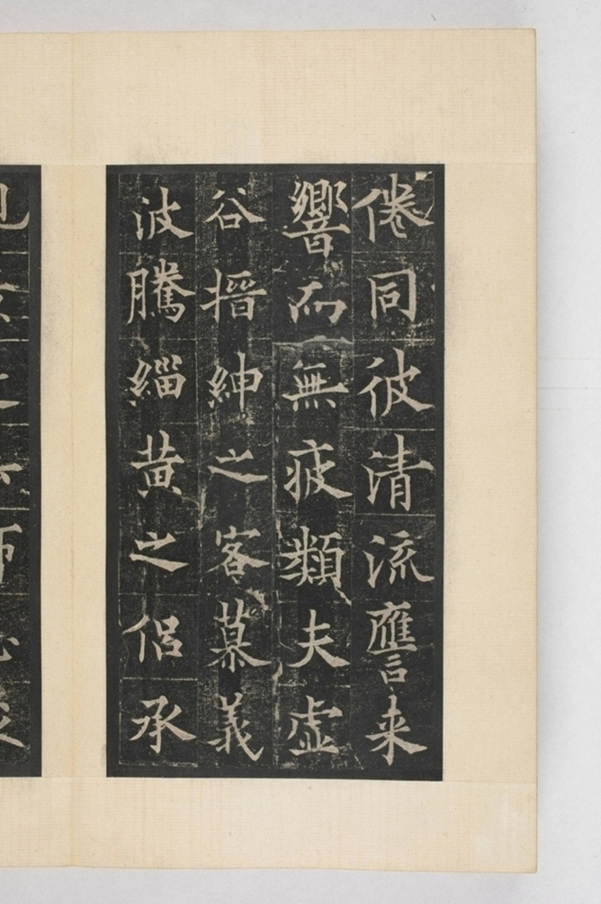 倦同彼清流譍来
響而無疲類夫虚
谷搢紳之客慕義
波騰緇黄之侣承